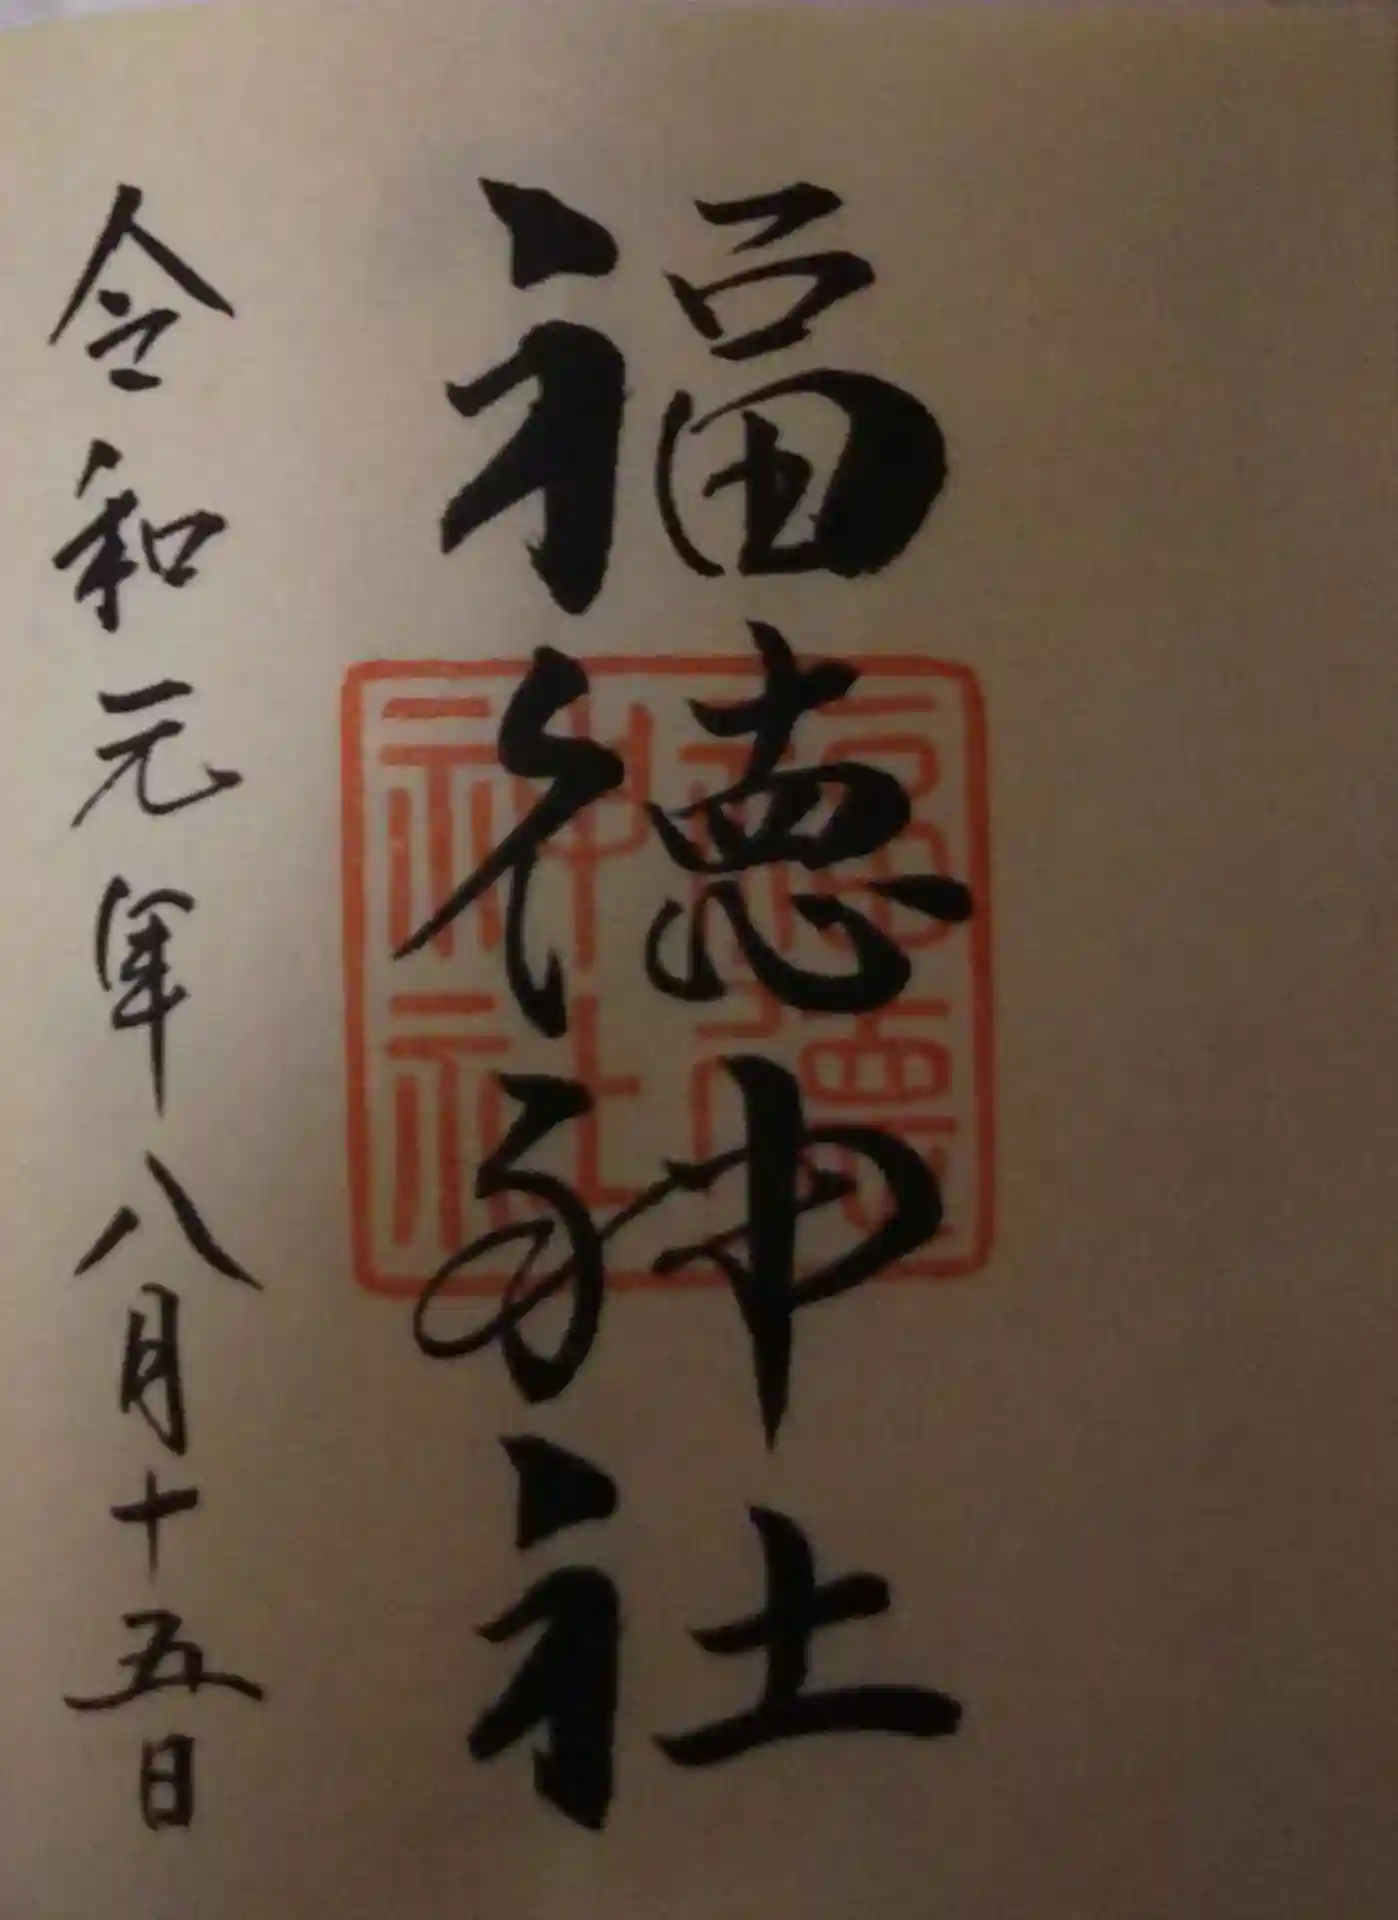 福徳神社
福徳
神社
令和元年八月十五日